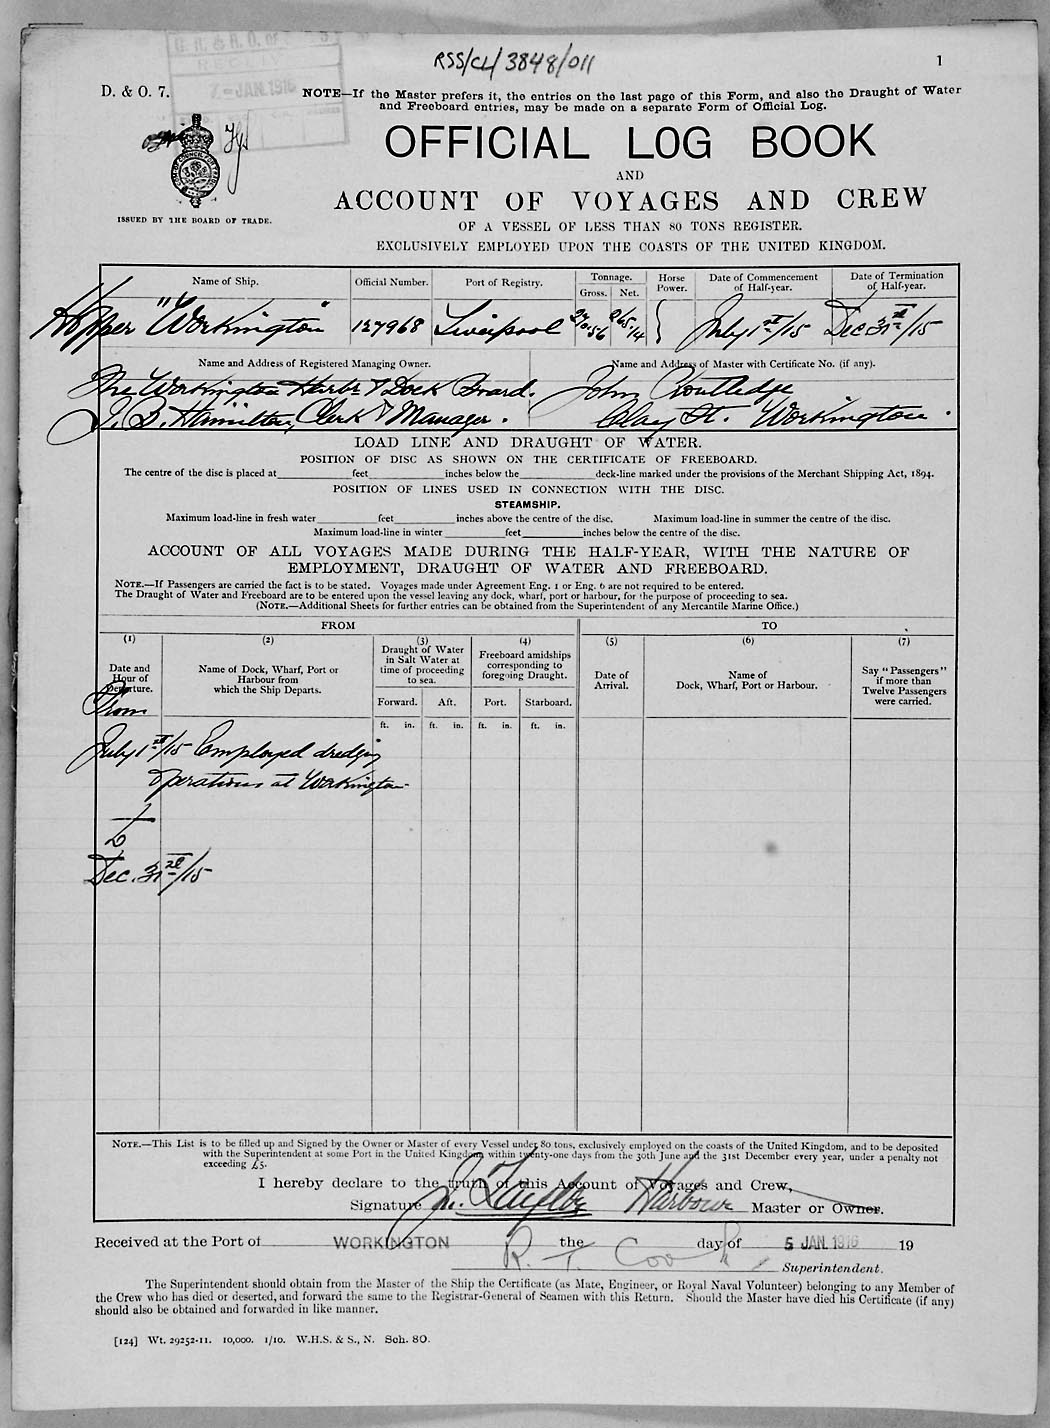 RSS/CL/3848/011
1
G. R. & R. O. of
RECEIV
7 - JAN. 1916
D. & O. 7.
NOTE—If the Master prefers it, the entries on the last page of this Form, and also the Draught of Water
and Freeboard entries, may be made on a separate Form of Official Log.
OFFICIAL LOG BOOK
AND
ACCOUNT OF VOYAGES AND CREW
OF A VESSEL OF LESS THAN 80 TONS REGISTER.
EXCLUSIVELY EMPLOYED UPON THE COASTS OF THE UNITED KINGDOM.
ISSUED BY THE BOARD OF TRADE.
Name of Ship. Official Number. Port of Registry. Tonnage. Gross. Net. Horse Power. Date of Commencement of Half-year. Date of Termination of Half-year.
Hopper "Workington" 127968 Liverpool 270.56 265.14 July 1st/15 Dec 31st/15
Name and Address of Registered Managing Owner. Name and Address of Master with Certificate No. (if any).
The Workington Harbr & Dock Board. John Routledge
J. B. Hamilton, Clerk & Manager. Clay St. Workington.
LOAD LINE AND DRAUGHT OF WATER.
POSITION OF DISC AS SHOWN ON THE CERTIFICATE OF FREEBOARD.
The centre of the disc is placed at feet inches below the deck-line marked under the provisions of the Merchant Shipping Act, 1894.
POSITION OF LINES USED IN CONNECTION WITH THE DISC.
STEAMSHIP.
Maximum load-line in fresh water feet inches above the centre of the disc. Maximum load-line in summer the centre of the disc.
Maximum load-line in winter feet inches below the centre of the disc.
ACCOUNT OF ALL VOYAGES MADE DURING THE HALF-YEAR, WITH THE NATURE OF
EMPLOYMENT, DRAUGHT OF WATER AND FREEBOARD.
NOTE.—If Passengers are carried the fact is to be stated. Voyages made under Agreement Eng. 1 or Eng. 6 are not required to be entered.
The Draught of Water and Freeboard are to be entered upon the vessel leaving any dock, wharf, port or harbour, for the purpose of proceeding to sea.
(NOTE.—Additional Sheets for further entries can be obtained from the Superintendent of any Mercantile Marine Office.)
FROM TO
(1) (2) (3) (4) (5) (6) (7)
Date and Hour of Departure.
Name of Dock, Wharf, Port or Harbour from which the Ship Departs.
Draught of Water in Salt Water at time of proceeding to sea.
Freeboard amidships corresponding to foregoing Draught.
Date of Arrival.
Name of Dock, Wharf, Port or Harbour.
Say "Passengers" if more than Twelve Passengers were carried.
Forward. Aft. Port. Starboard.
ft. in. ft. in. ft. in. ft. in.
From
July 1st/15 Employed dredging
operations at Workington
to
Dec. 31st/15
NOTE.—This List is to be filled up and Signed by the Owner or Master of every Vessel under 80 tons, exclusively employed on the coasts of the United Kingdom, and to be deposited
with the Superintendent at some Port in the United Kingdom within twenty-one days from the 30th June and the 31st December every year, under a penalty not
exceeding £5.
I hereby declare to the truth of this Account of Voyages and Crew,
Signature Harbour Master or Owner.
Received at the Port of WORKINGTON the day of 5 JAN. 1916 19
Superintendent.
The Superintendent should obtain from the Master of the Ship the Certificate (as Mate, Engineer, or Royal Naval Volunteer) belonging to any Member of
the Crew who has died or deserted, and forward the same to the Registrar-General of Seamen with this Return. Should the Master have died his Certificate (if any)
should also be obtained and forwarded in like manner.
[124] Wt. 29252-11. 10,000. 1/10. W.H.S. & S., N. Sch. 80.